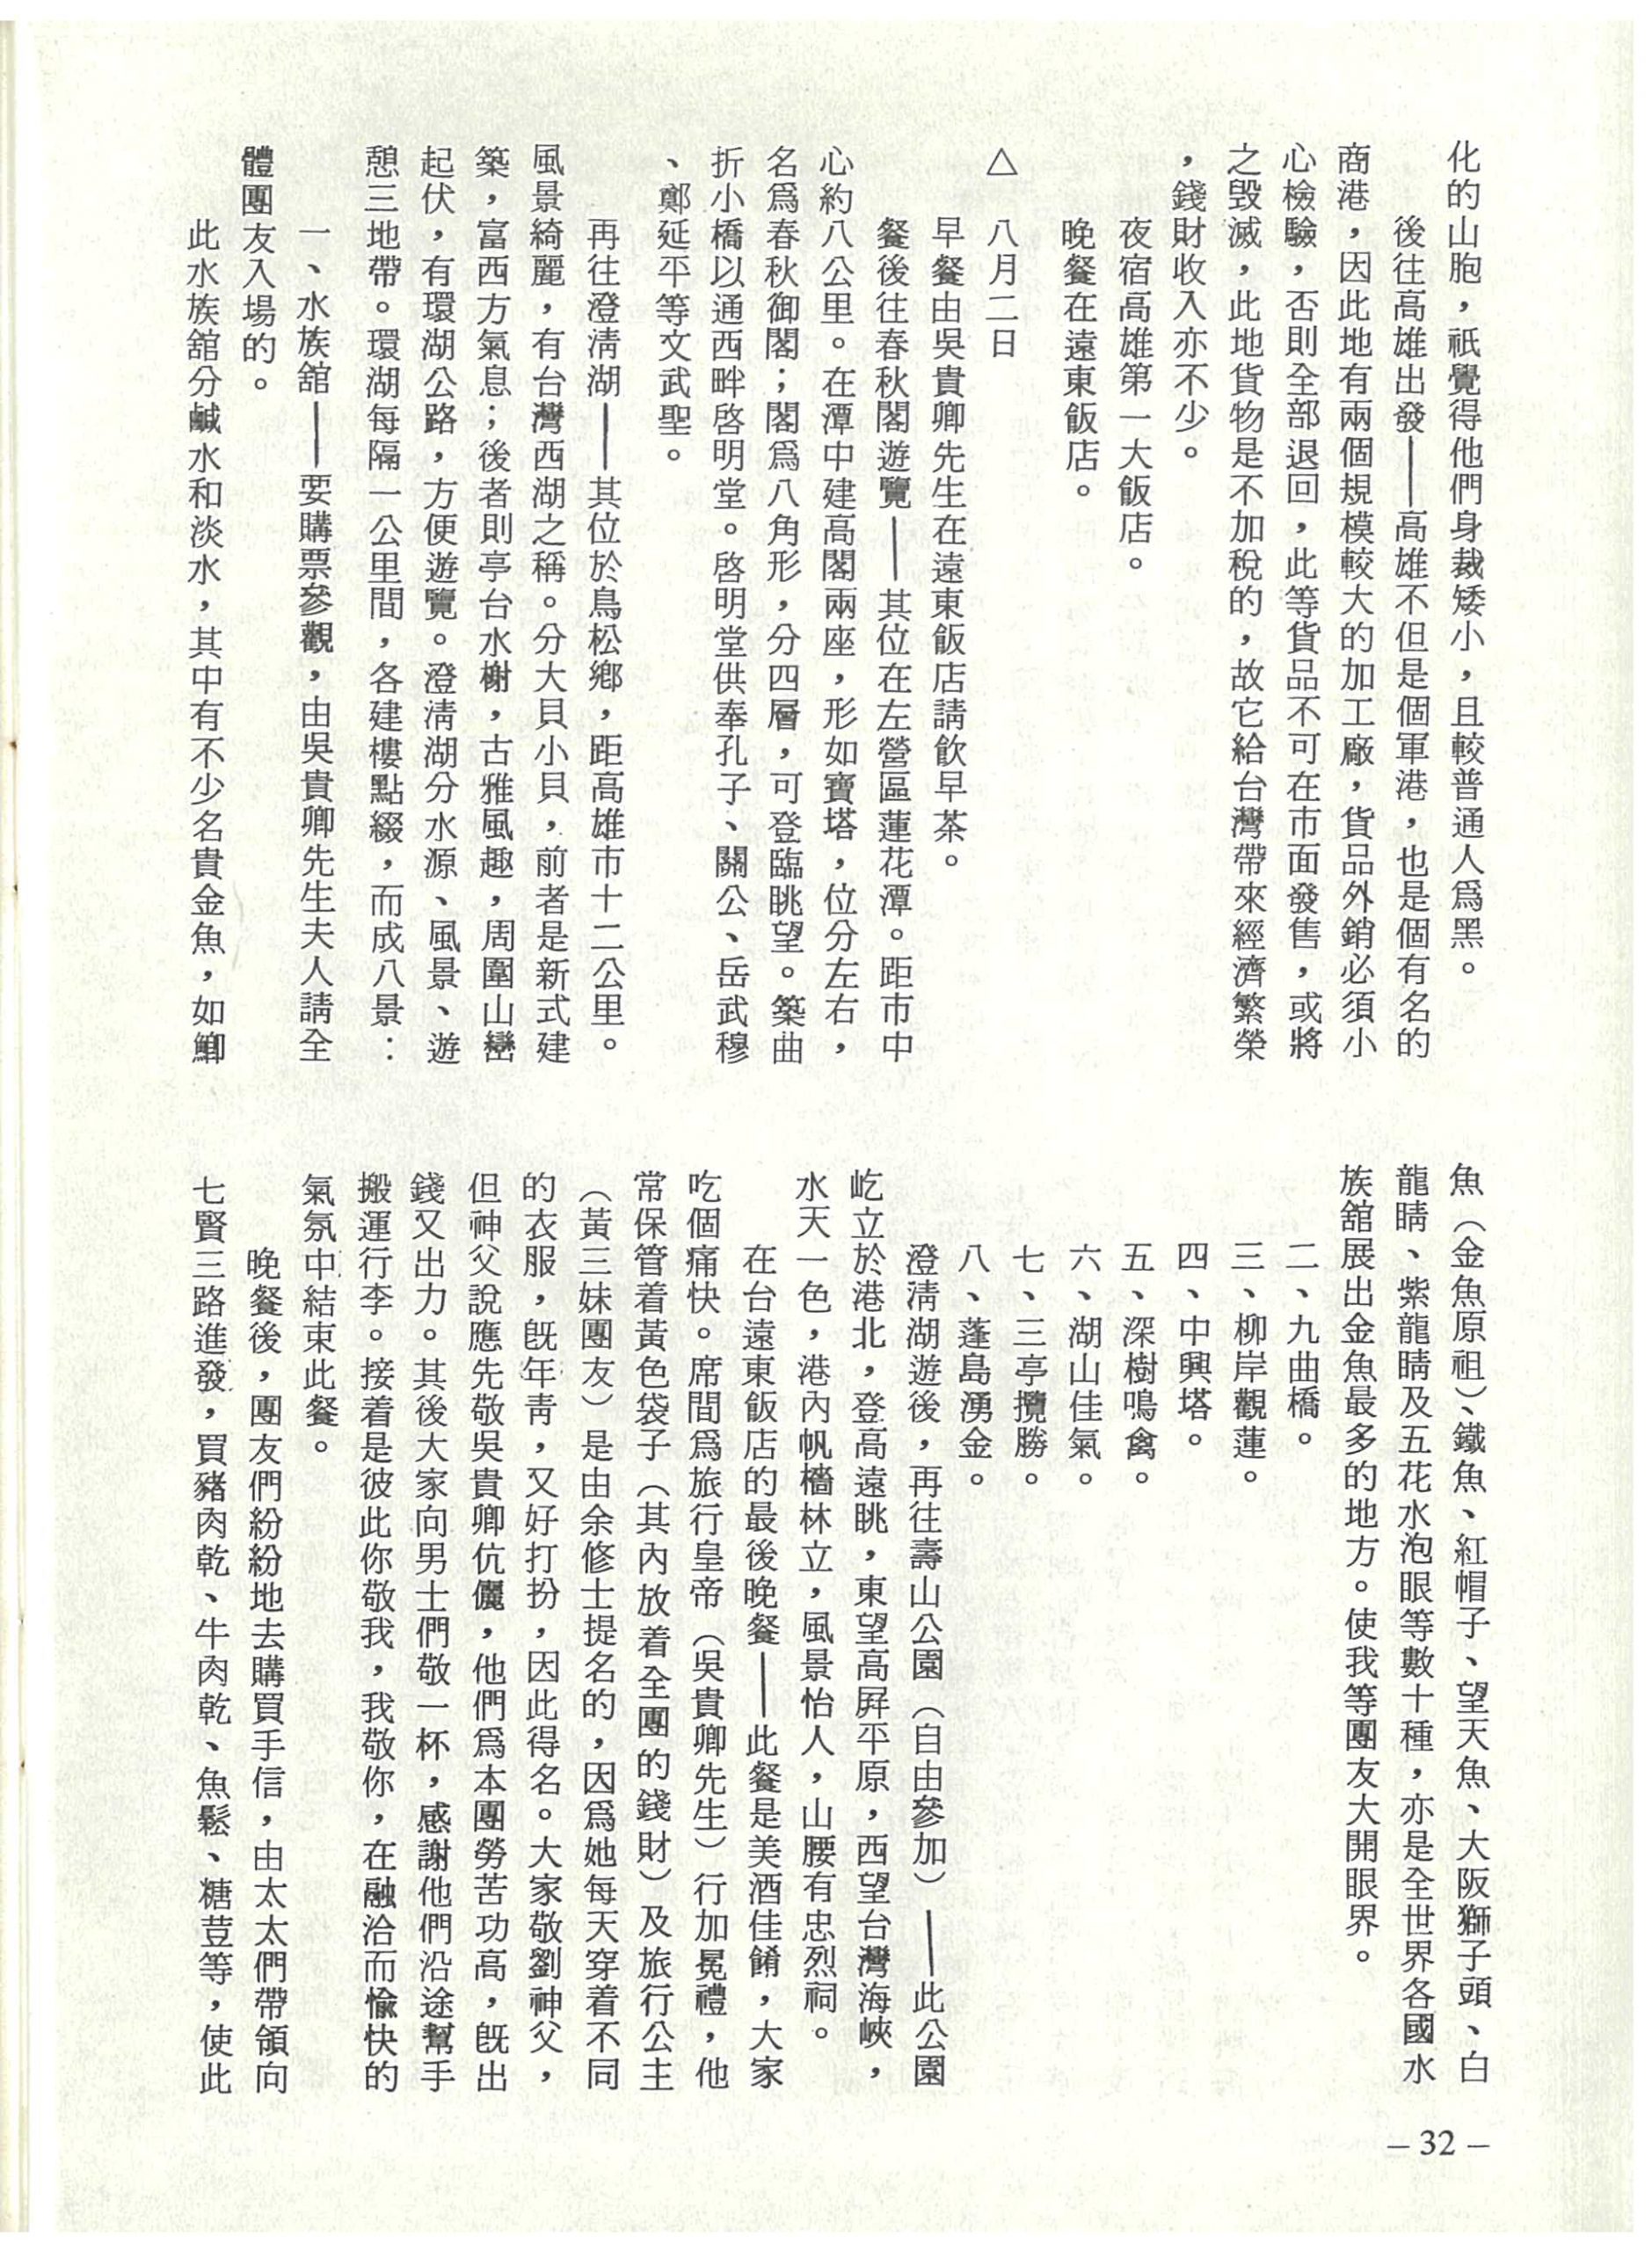 化的山胞，祇覺得他們身裁矮小，且較普通人爲黑。
後往高雄出發——高雄不但是個軍港，也是個有名的
商港，因此地有兩個規模較大的加工廠，貨品外銷必須小
心檢驗，否則全部退回，此等貨品不可在市面發售，或將
之毀滅，此地貨物是不加稅的，故它給台灣帶來經濟繁榮
，錢財收入亦不少。
夜宿高雄第一大飯店。
晚餐在遠東飯店。
△　八月二日
早餐由吳貴卿先生在遠東飯店請飲早茶。
餐後往春秋閣遊覽——其位在左營區蓮花潭。距市中
心約八公里。在潭中建高閣兩座，形如寶塔，位分左右，
名爲春秋御閣；閣爲八角形，分四層，可登臨眺望。築曲
折小橋以通西畔啓明堂。啓明堂供奉孔子、關公、岳武穆
、鄭延平等文武聖。
再往澄淸湖——其位於鳥松鄉，距高雄市十二公里。
風景綺麗，有台灣西湖之稱。分大貝小貝，前者是新式建
築，富西方氣息；後者則亭台水榭，古雅風趣，周圍山巒
起伏，有環湖公路，方便遊覽。澄淸湖分水源、風景、遊
憩三地帶。環湖每隔一公里間，各建樓點綴，而成八景：
一、水族舘——要購票參觀，由吳貴卿先生夫人請全
體團友入場的。
此水族舘分鹹水和淡水，其中有不少名貴金魚，如鯽
魚（金魚原祖）、鐵魚、紅帽子、望天魚、大阪獅子頭、白
龍睛、紫龍睛及五花水泡眼等數十種，亦是全世界各國水
族舘展出金魚最多的地方。使我等團友大開眼界。
二、九曲橋。
三、柳岸觀蓮。
四、中興塔。
五、深樹鳴禽。
六、湖山佳氣。
七、三亭攬勝。
八、蓬島湧金。
澄淸湖遊後，再往壽山公園（自由參加）——此公園
屹立於港北，登高遠眺，東望高屛平原，西望台灣海峽，
水天一色，港內帆檣林立，風景怡人，山腰有忠烈祠。
在台遠東飯店的最後晚餐——此餐是美酒佳餚，大家
吃個痛快。席間爲旅行皇帝（吳貴卿先生）行加冕禮，他
常保管着黃色袋子（其內放着全團的錢財）及旅行公主
（黃三妹團友）是由余修士提名的，因爲她每天穿着不同
的衣服，旣年靑，又好打扮，因此得名。大家敬劉神父，
但神父說應先敬吳貴卿伉儷，他們爲本團勞苦功高，旣出
錢又出力。其後大家向男士們敬一杯，感謝他們沿途幫手
搬運行李。接着是彼此你敬我，我敬你，在融洽而愉快的
氣氛中結束此餐。
晚餐後，團友們紛紛地去購買手信，由太太們帶領向
七賢三路進發，買豬肉乾、牛肉乾、魚鬆、糖荳等，使此
— 32 —